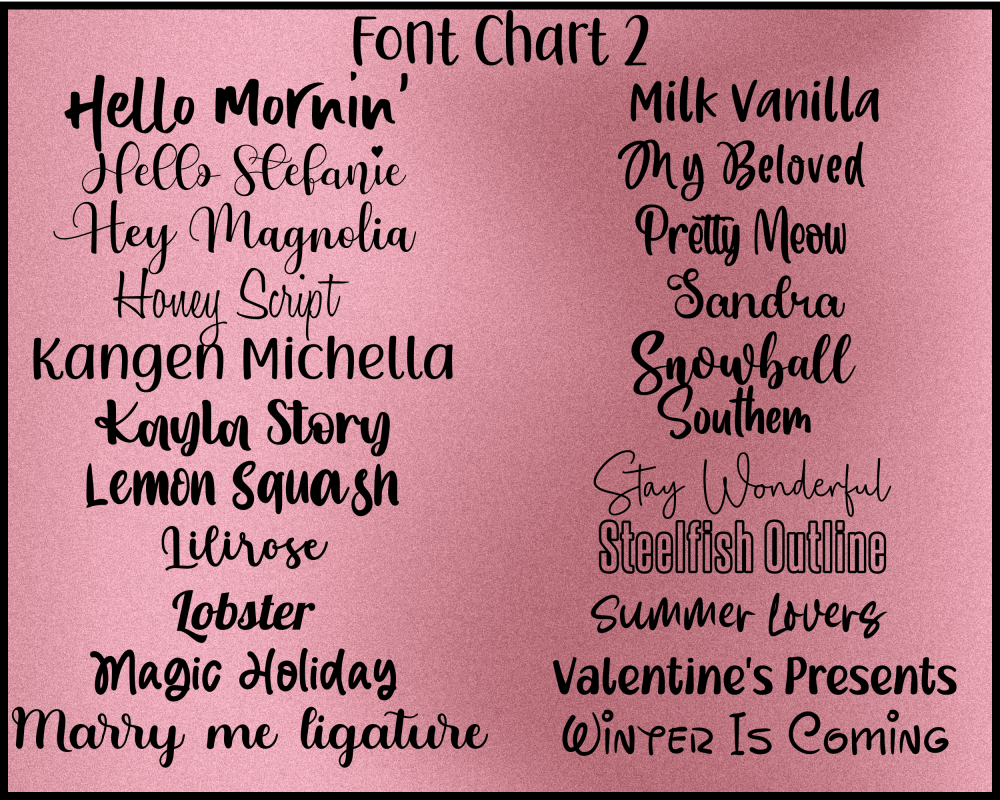 Font Chart 2
Hello Mornin'
Hello Stefanie
Hey Magnolia
Honey Script
Kangen Michella
Kayla Story
Lemon Squash
Lilirose
Lobster
Magic Holiday
Marry me ligature
Milk Vanilla
My Beloved
Pretty Meow
Sandra
Snowball
Southem
Stay Wonderful
Steelfish Outline
Summer Lovers
Valentine's Presents
Winter Is Coming